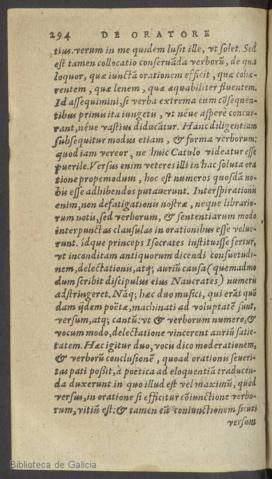 294 DE ORATORE
tius. verum in me quidem lusit ille, vt solet. Sed
est tamen collocatio conseruāda verborũ, de qua
loquor, quæ iunctā orationem efficit, quæ cohæ-
rentem, quæ lenem, quæ æquabiliter fluentem.
Id assequimini, si verba extrema cum cōsequen-
tibus primis ita iungetis, vt neue asperè concur-
rant, néue vastius diducātur. Hāc diligentiam
subsequitur modus etiam, & forma verborum:
quod iam vereor, ne huic Catulo videatur esse
puerile. Versus enim veteres illi in hac soluta ora
tione propemodum, hoc est numeros quosdā no-
bis esse adhibendos putauerunt. Interspirationis
enim, non defatigationis nostræ, neque librario-
rum notis, sed verborum, & sententiarum modo
interpunctas clausulas in orationibus esse volue-
runt. idque princeps Isocrates instituisse fertur,
vt inconditam antiquorum dicendi consuetudi-
nem, delectationis, atq; auriũ causa (quemadmo
dum scribit discipulus eius Naucrates) numeris
adstringeret. Nāq; hæc duo musici, qui erāt quō
dam ijdem poëtæ, machinati ad voluptatē sunt,
versum, atq; cantũ: vt & verborum numero, &
vocum modo, delectatione vincerent auriũ satie-
tatem. Hæc igitur duo, vocis dico moderationem,
& verborũ conclusionē, quoad orationis seueri-
tas pati possit, à poëtica ad eloquentiā traducen-
da duxerunt in quo illud est vel maximũ, quòd
versus, in oratione si efficitur cōiunctione verbo-
rum, vitiũ est: & tamen eā coniunctionem sicuti
versum
Biblioteca de Galicia